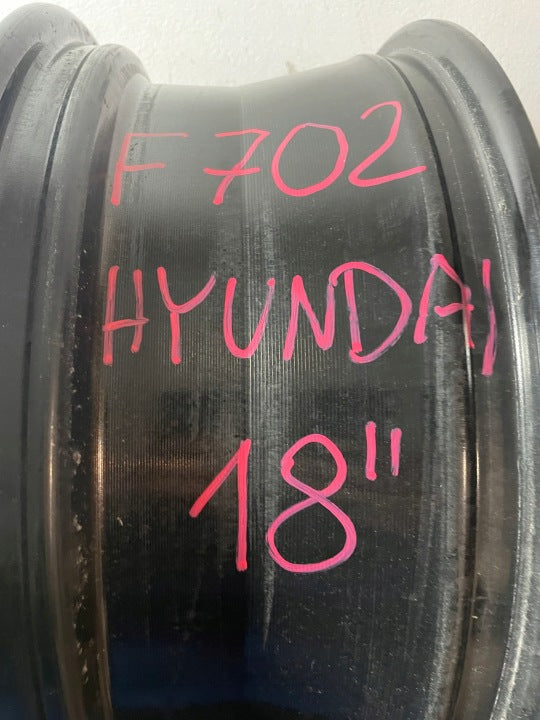 F702
HYUNDAI
18"